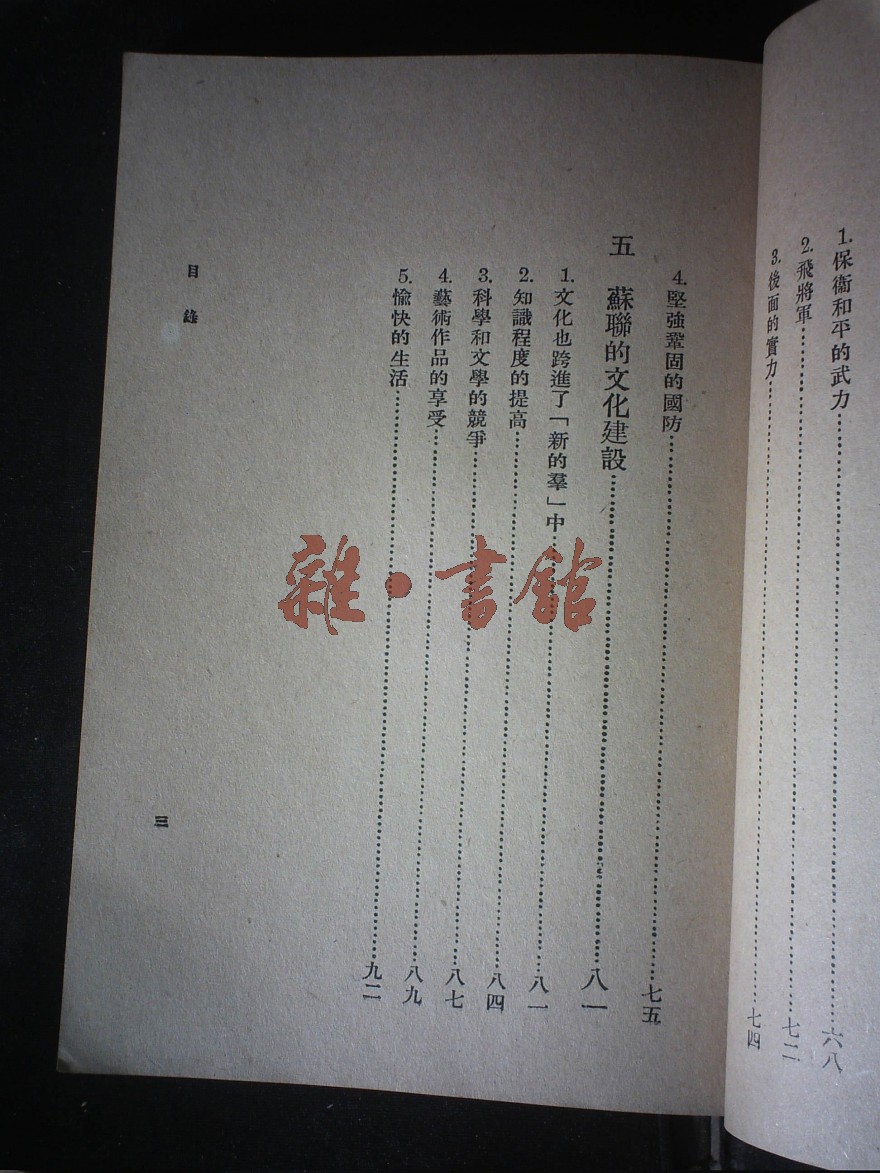 1.保衛和平的武力……六八
2.飛將軍……七二
3.後面的實力……七四
4.堅強鞏固的國防……七五
五 蘇聯的文化建設……八一
1.文化也跨進了「新的羣」中……八一
2.知識程度的提高……八四
3.科學和文學的競爭……八七
4.藝術作品的享受……八九
5.愉快的生活……九二
目錄
三
雜·書館